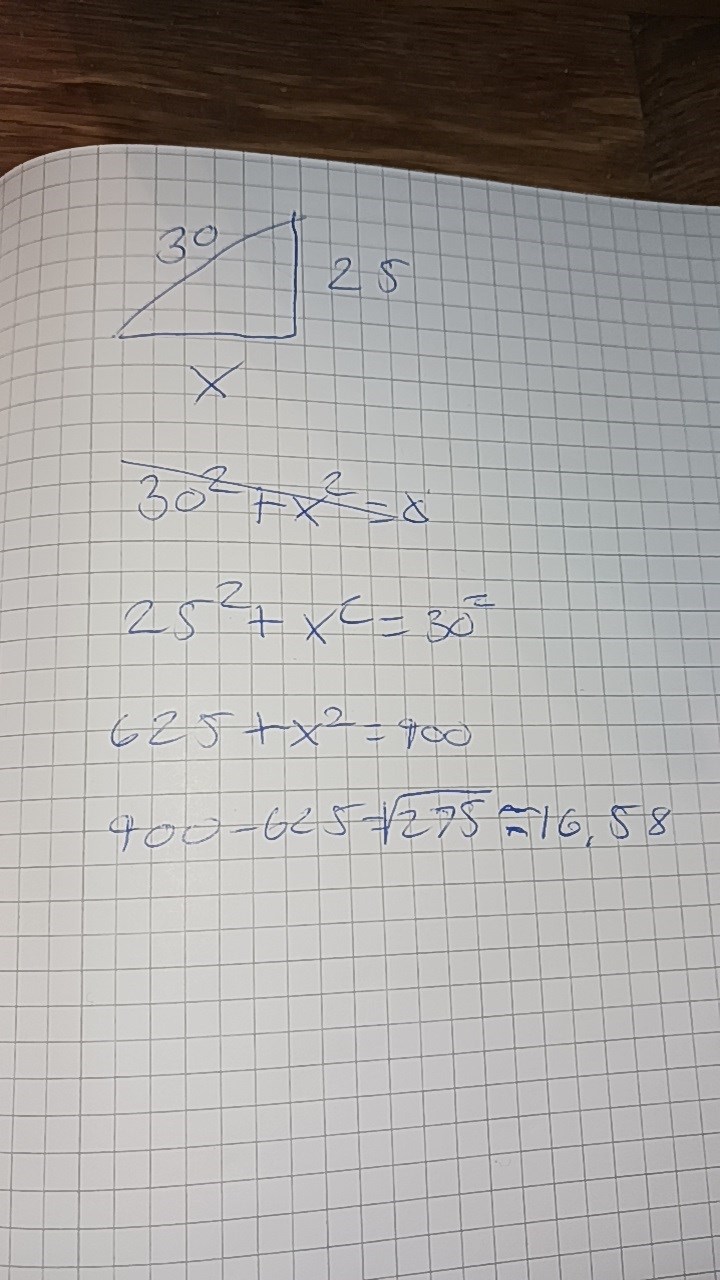 30
25
x
30² + x² = x
25² + x² = 30²
625 + x² = 900
900 - 625 = √275 ≈ 16,58